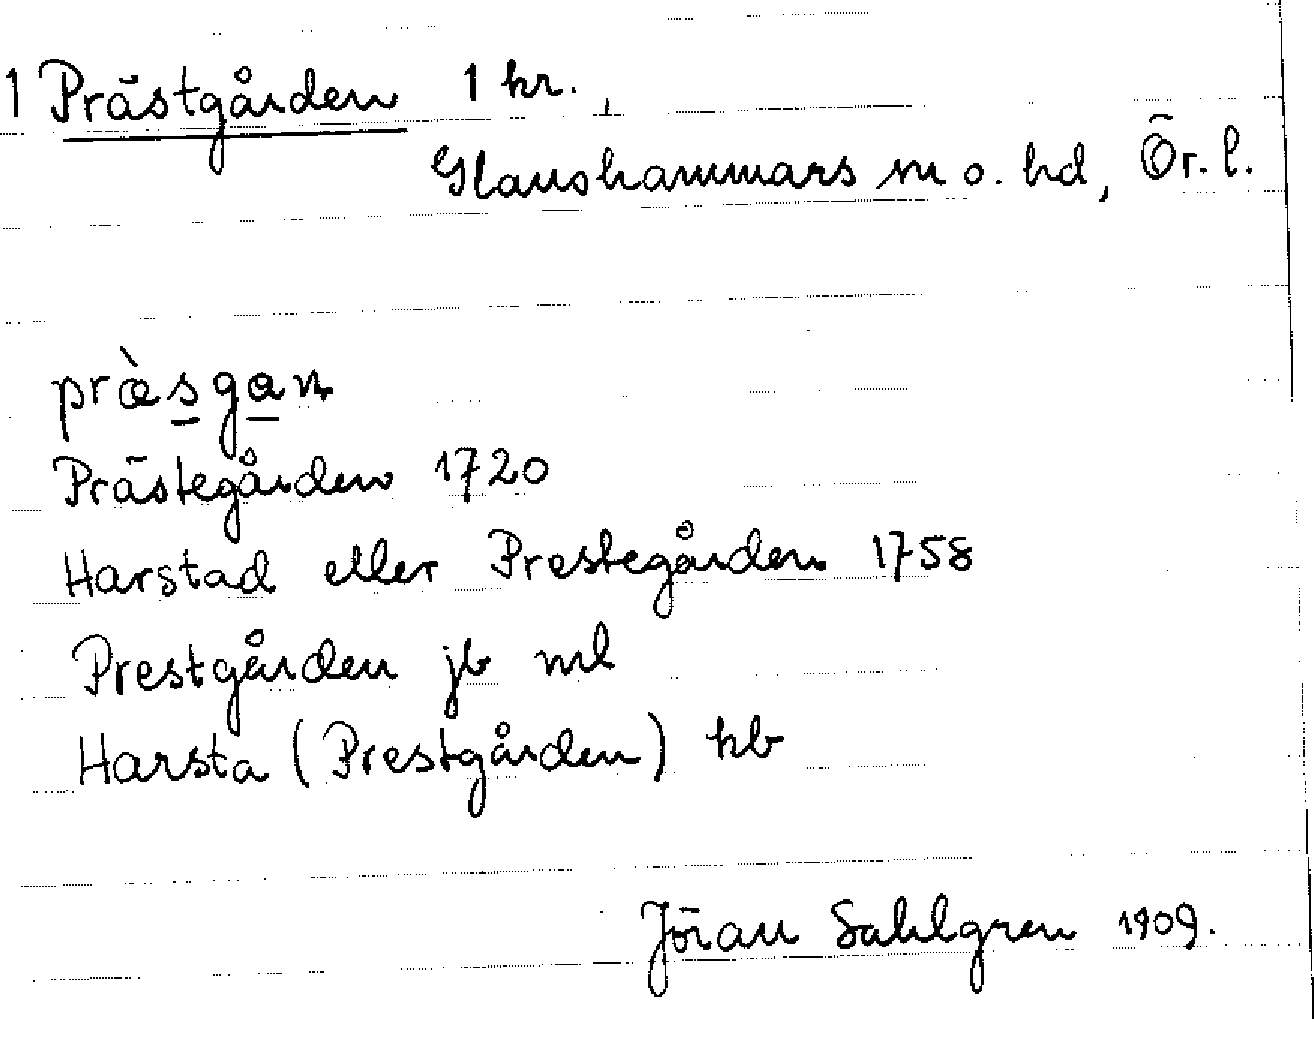 1 Prästgården 1 hr.
Glanshammars sn o. hd, Ör. l.
præ̀sgan
Prästegården 1720
Harstad eller Prestegården 1758
Prestgården jb ml
Harsta (Prestgården) kb
Jöran Sahlgren 1909.